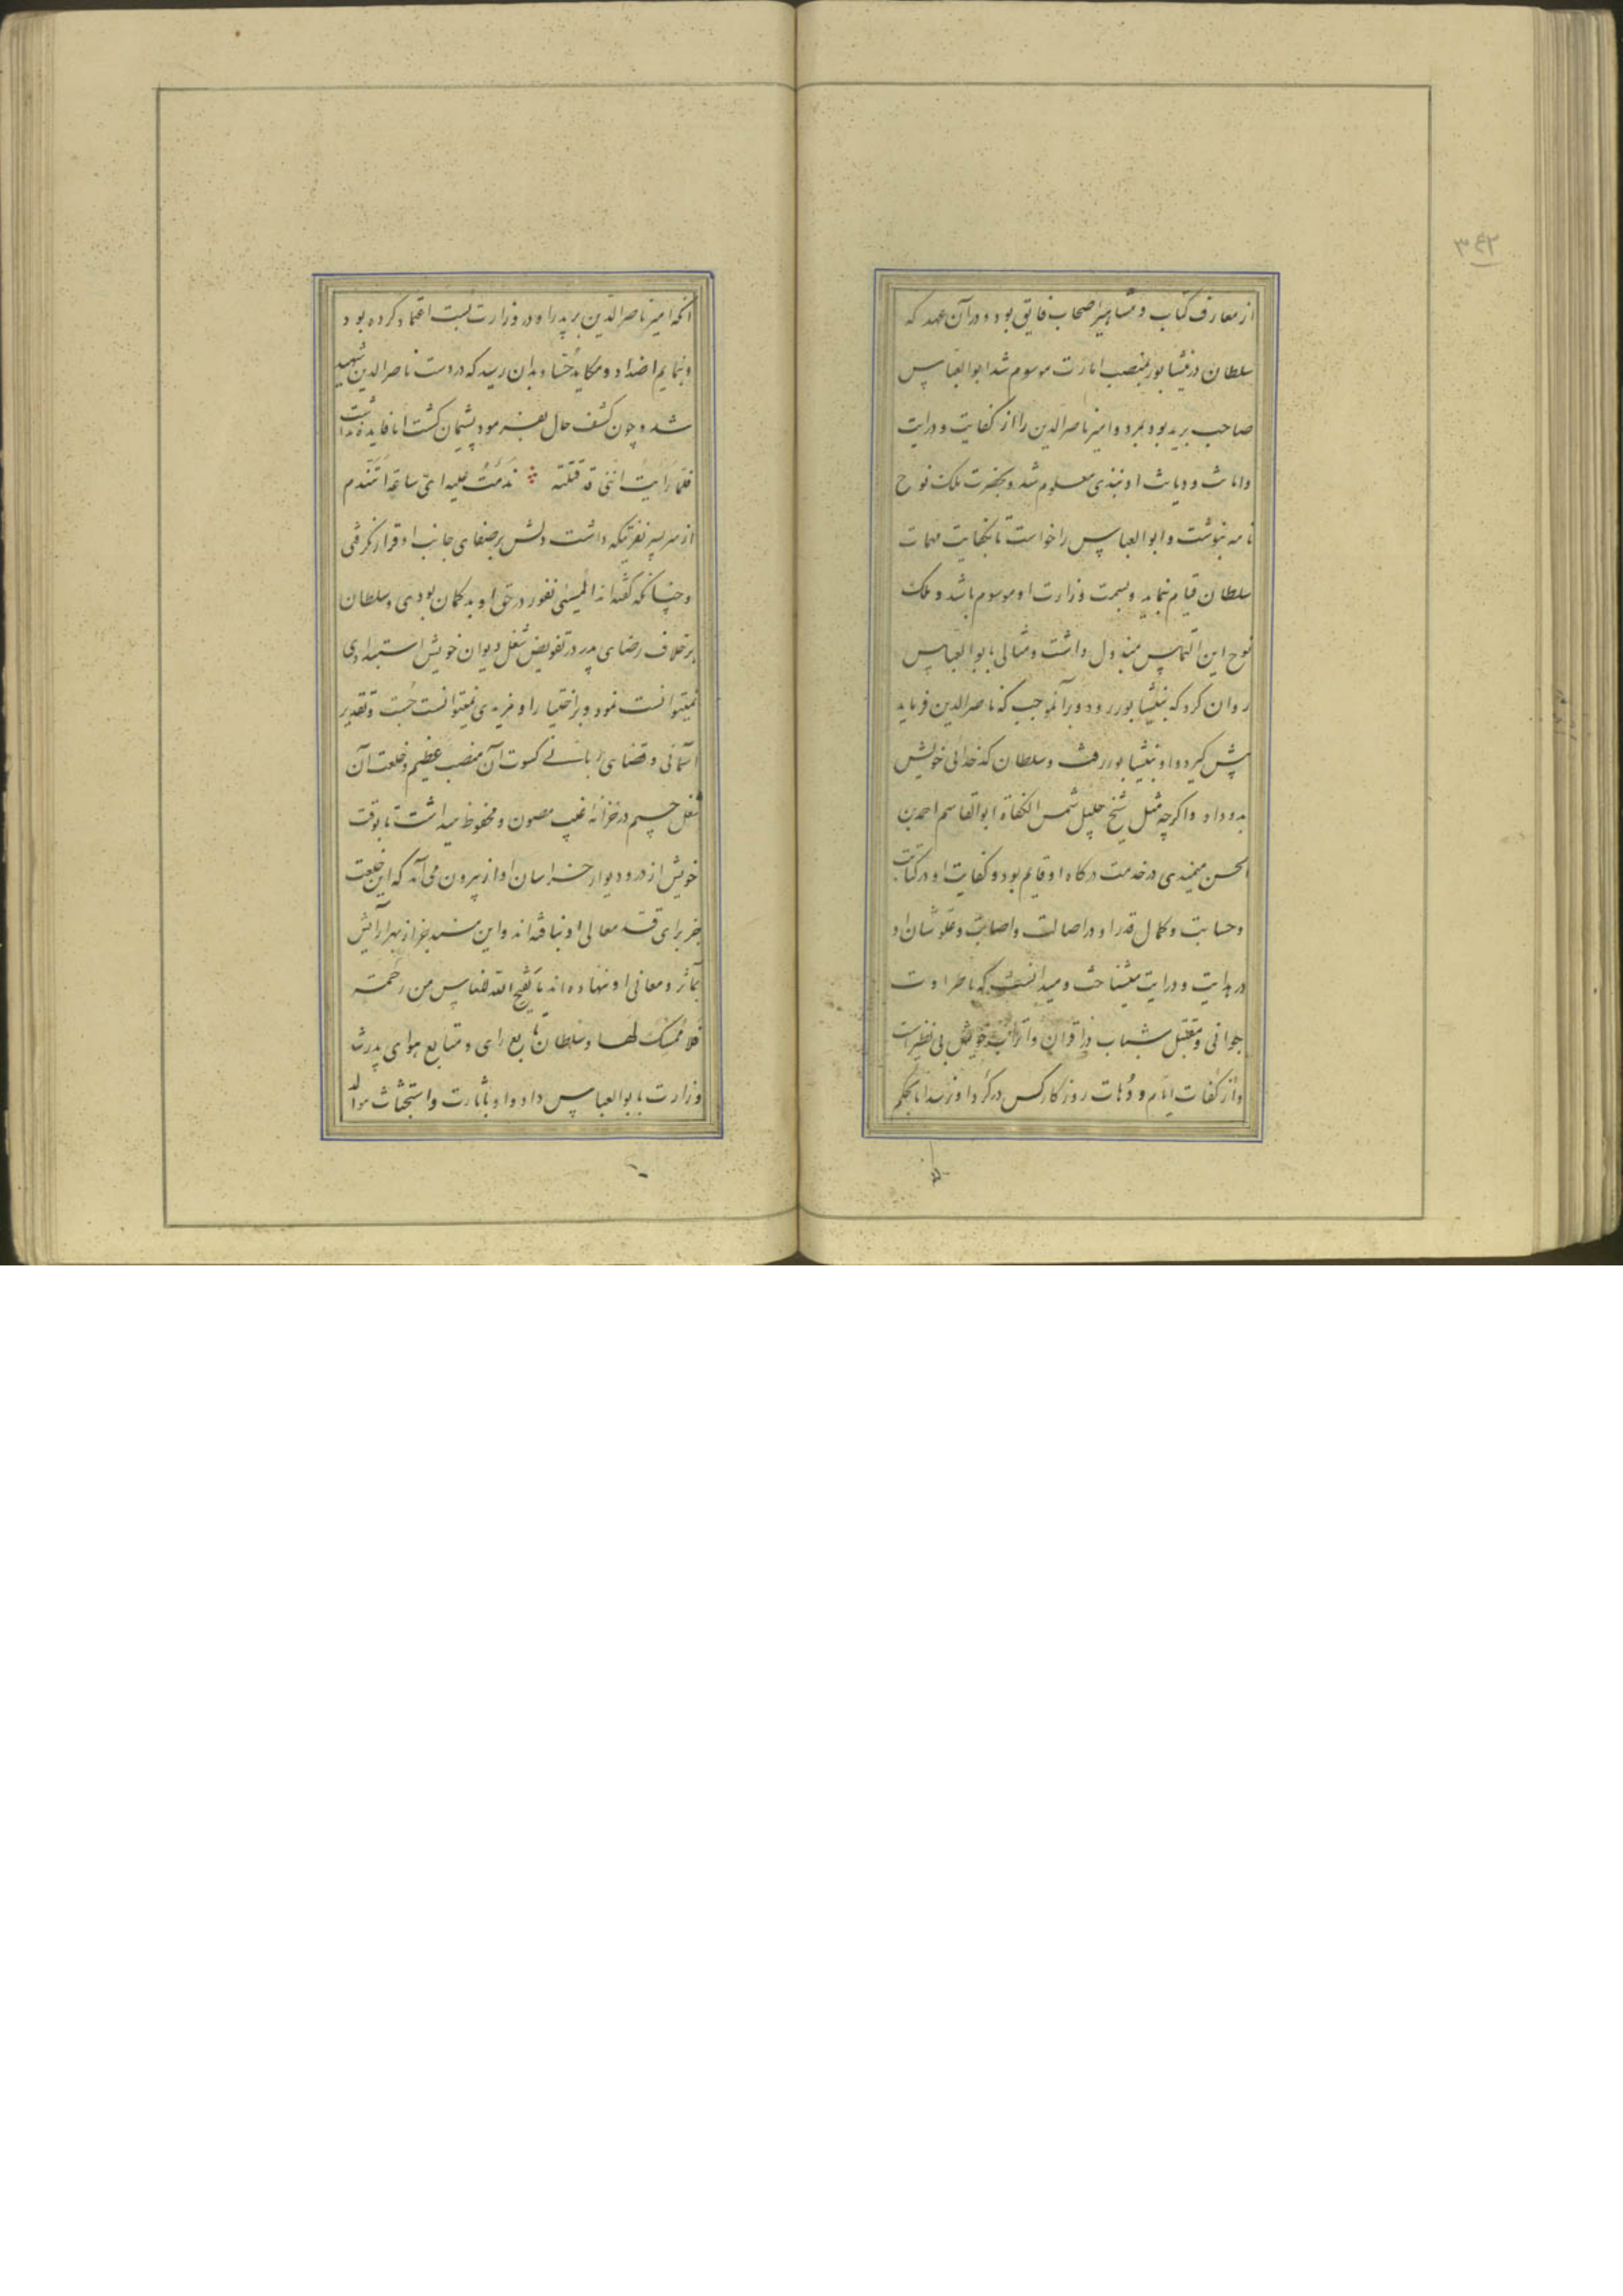 ۳۴۲
از معارف کتاب و مشاهیر اصحاب فایق بود و در آن عهد که
سلطان در نیشابور بمنصب امارت موسوم شد ابوالعباس
صاحب برید بود بمرو و امیر ناصرالدین را از کفایت و درایت
و امانت و دیانت او نبذی معلوم شد و بحضرت ملک نوح
نامه نبوشت و ابوالعباس را خواست تا بکفایت مهمات
سلطان قیام نماید و بسمت وزارت او موسوم باشد و ملک
نوح این التماس مبذول داشت و مثالی بابوالعباس
روان کرد که بنیشابور رود و برآنموجب که ناصرالدین فرماید
پیش گیرد و او بنیشابور رفت و سلطان کدخدائی خویش
بدو داد و اگرچه مثل شیخ جلیل شمس الکفاة ابوالقاسم احمد بن
الحسن میمندی در خدمت درگاه او قایم بود و کفایت او در کتابت
و حسابت و کمال قدر او در اصالت و اصابت و علو شان او
در هدایت و درایت میشناخت و میدانست که با طراوت
جوانی و مقتبل شباب در اقران و اتراب خویش بی نظیرست
و از کفات ایام و دُهات روزگار کس در گرد او نرسد اما بحکم
آنکه امیر ناصرالدین بر پدر او در وزارت بست اعتماد کرده بود
و بنمایم اضداد و مکاید حُسّاد بدان رسید که در دست ناصرالدین شهید
شد و چون کشف حال بفرمود پشیمان گشت اما فایده نداشت
فلمّا رَایت انّنی قد قتلته ندمتُ علیه ایّ ساعة اَتندم
از سر سر نفرتیکه داشت دلش بر صفای جانب او قرار نگرفتی
و چنانکه گفته‌اند المسیٔ نفور در حق او بدگمان بودی و سلطان
برخلاف رضای پدر در تفویض شغل دیوان خویش استبدادی
نمیتوانست نمود و بر اختیار او مزیدی نمیتوانست جُست و تقدیر
آسمانی و قضای ربانی کسوت آن منصب عظیم و خلعت آن
شغل جسیم در خزانهٔ غیب مصون و محفوظ میداشت تا بوقت
خویش از در و دیوار خراسان آواز بیرون می‌آمد که این خلعت
جز برای قد معالی او نبافته‌اند و این مسند جز از بهر آرایش
بمآثر و معانی او ننهاده‌اند ما یَفتحِ الله للناس من رحمة
فلا مُمسک لها و سلطان تابع رای و متابع هوای پدر شد
وزارت بابوالعباس داد و او باثارت و استحثاث موال